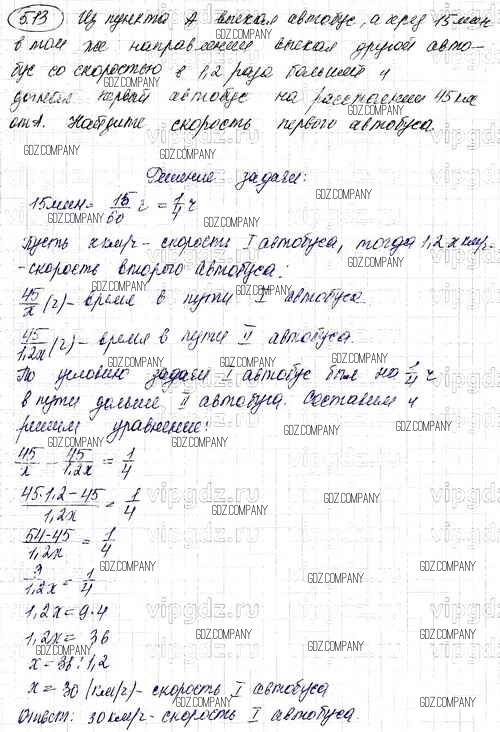 513 Из пункта А выехал автобус, а через 15 мин
в том же направлении выехал другой авто-
бус со скоростью в 1,2 раза большей и
догнал первый автобус на расстоянии 45 км
от А. Найдите скорость первого автобуса.
Решение задачи:
15 мин = 15/60 ч = 1/4 ч
Пусть x км/ч - скорость I автобуса, тогда 1,2 x км/ч-
-скорость второго автобуса.
45/x (ч) - время в пути I автобуса.
45/1,2x (ч) - время в пути II автобуса.
По условию задачи I автобус был на 1/4 ч
в пути дольше II автобуса. Составим и
решим уравнение:
45/x - 45/1,2x = 1/4
45·1,2-45/1,2x = 1/4
54-45/1,2x = 1/4
9/1,2x = 1/4
1,2x = 9·4
1,2x = 36
x = 36:1,2
x = 30 (км/ч) - скорость I автобуса
Ответ: 30 км/ч - скорость I автобуса.
GDZ.COMPANY
vipgdz.ru